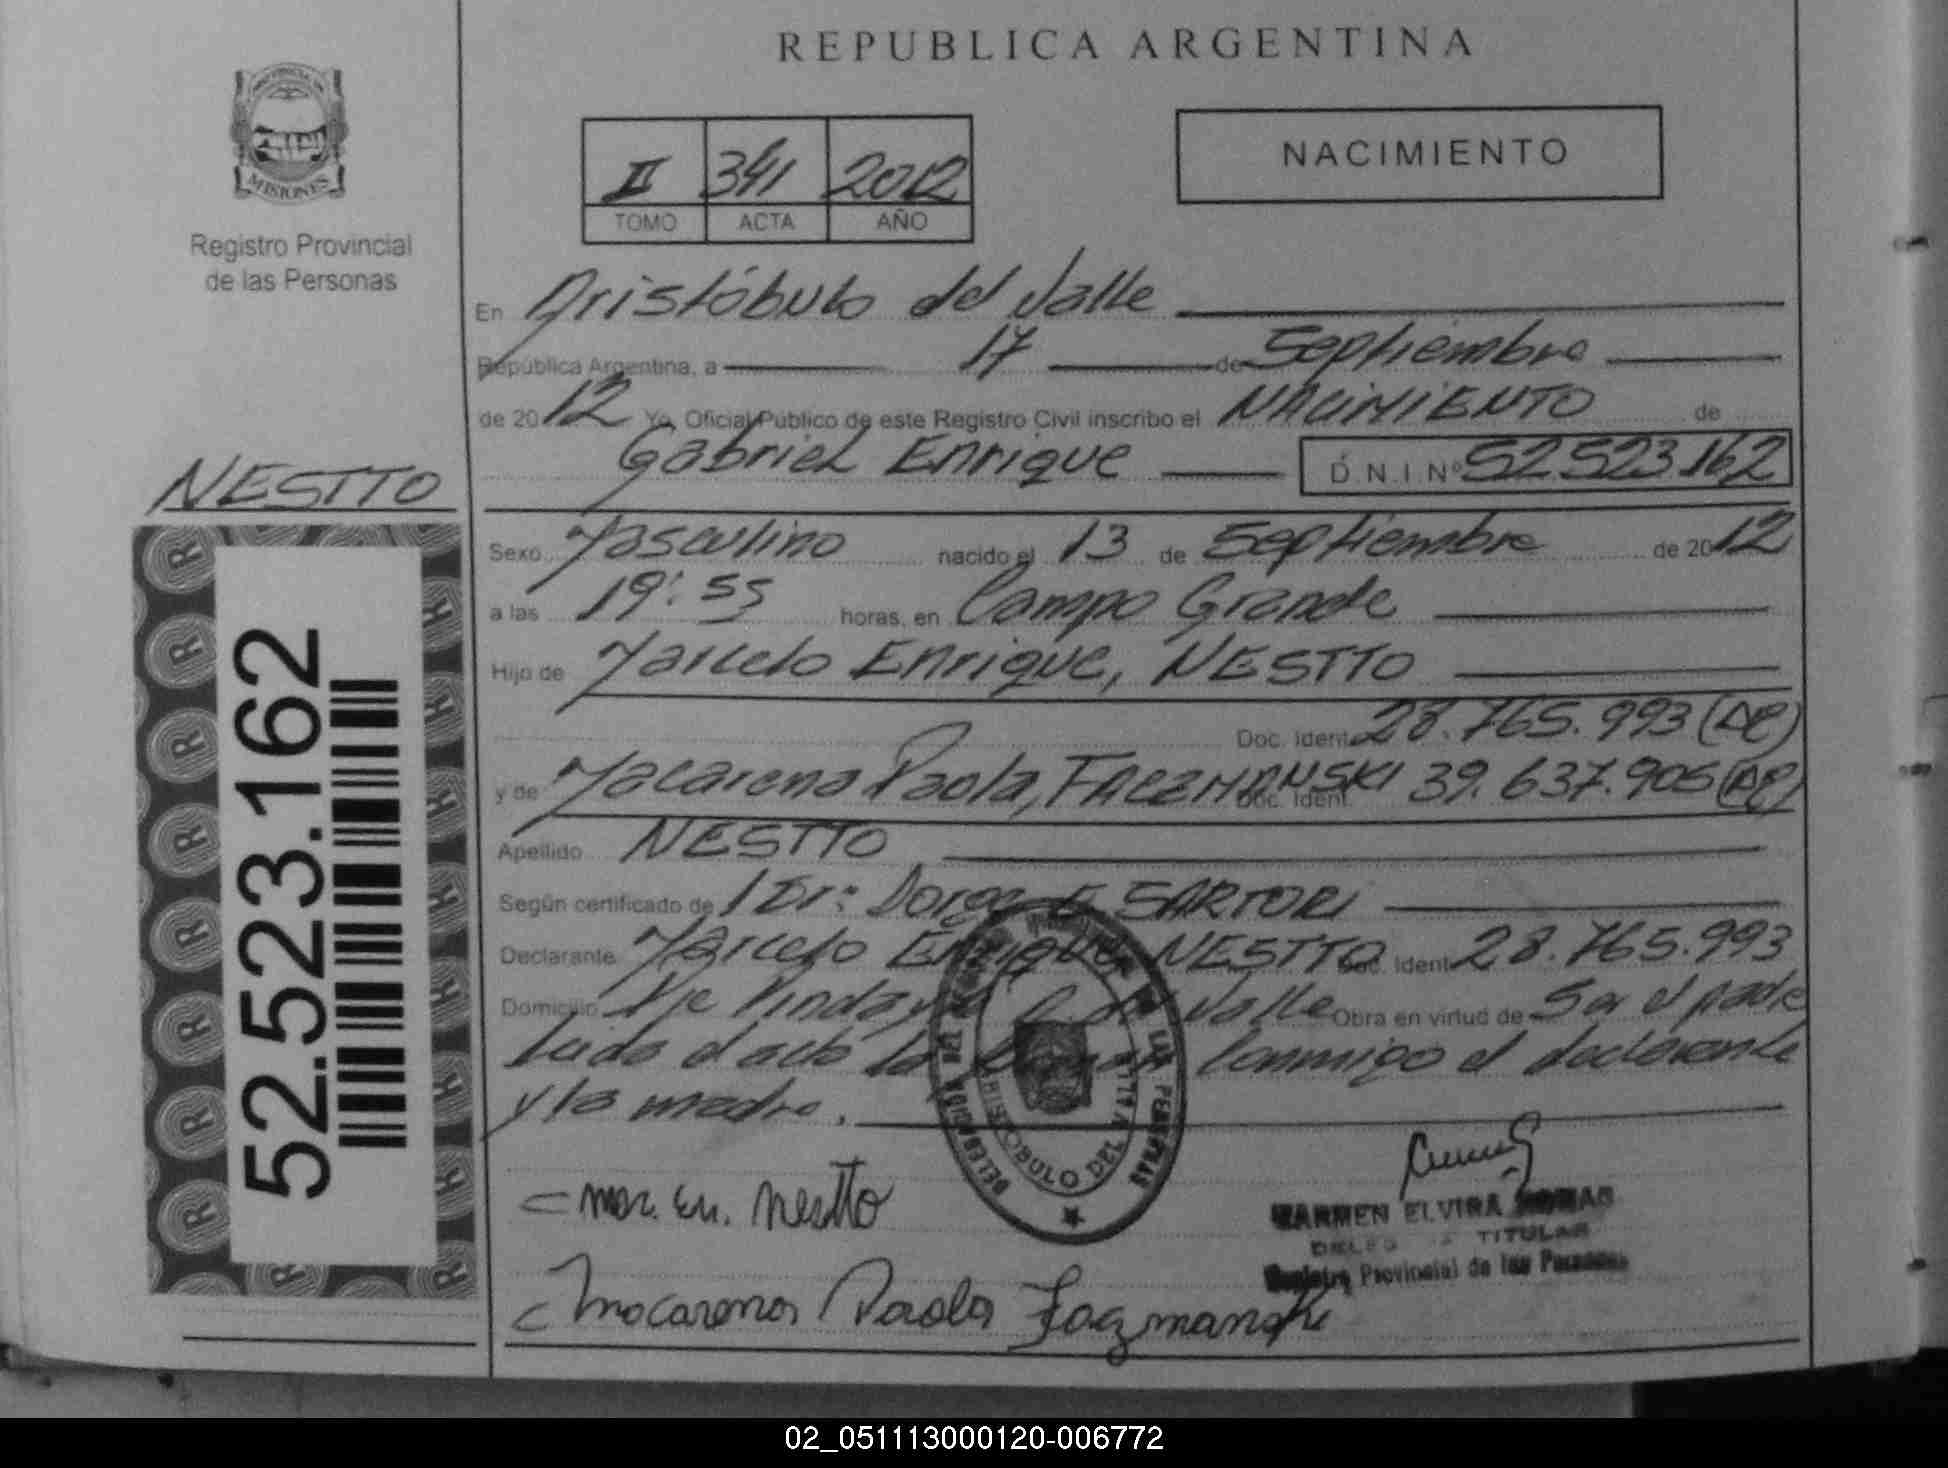 REPUBLICA ARGENTINA
PROVINCIA DE
MISIONES
Registro Provincial
de las Personas
II 341 2012
TOMO ACTA AÑO
NACIMIENTO
En Aristóbulo del Valle
República Argentina, a 17 de Septiembre
de 2012 Yo, Oficial Público de este Registro Civil inscribo el NACIMIENTO de
Gabriel Enrique D.N.I.Nº 52.523.162
NESTTO
52.523.162
Sexo Masculino nacido el 13 de Septiembre de 2012
a las 19:55 horas, en Campo Grande
Hijo de Marcelo Enrique, NESTTO
Doc. Ident. 28.765.993 (AR)
y de Macarena Paola, FACZMANSKI Doc. Ident. 39.637.905 (AR)
Apellido NESTTO
Según certificado de / Dr: Jorge E SARTORI
Declarante Marcelo Enrique NESTTO Doc. Ident. 28.765.993
Domicilio Pje Pindayti A. del Valle Obra en virtud de Ser el padre
Leída el acta la conmigo el declarante
y la madre.
DELEGACION DEL REGISTRO PROVINCIAL DE LAS PERSONAS
ARISTOBULO DEL VALLE
mar. en. nestto
CARMEN ELVIRA
TITULAR
Registro Provincial de las Personas
Macarena Paola Fagmanski
02_051113000120-006772